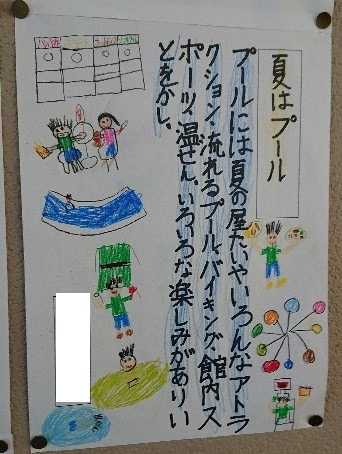 夏はプール
プールには夏の屋たいやいろんなアトラ
クション、流れるプール、バーキング、館内ス
ポーツ、温ぜん、いろいろな楽しみがありい
とをかし。